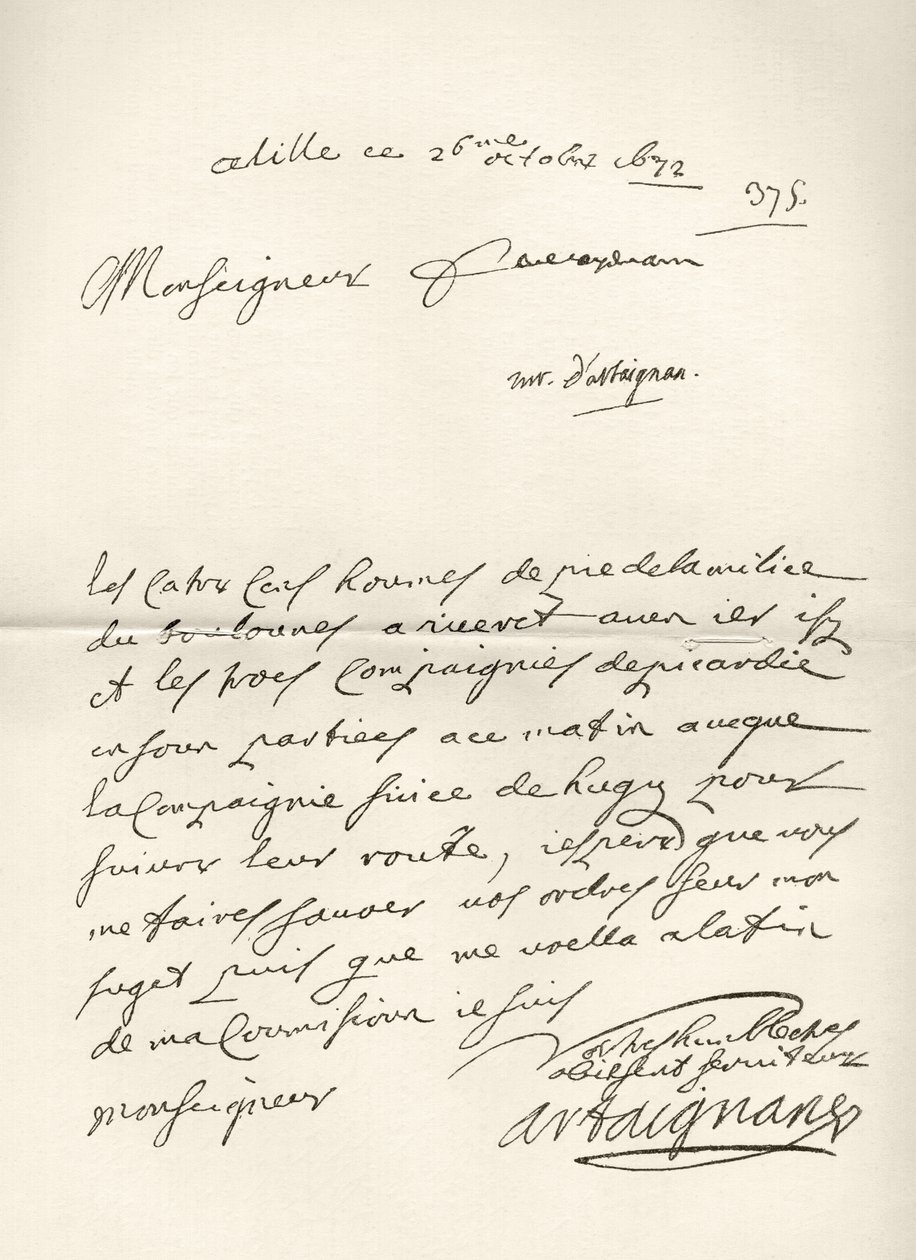 alille ce 26me octobre 1672
375.
Monseigneur
mr. d'artaignan.
les catre cens houmes de pie de la milice
du boulounes a riveret auen ier isy
et les troes compaignies de picardie
en soun partiees ace matin aveque
la compaignie suice de hugy pour
suivre leur route, iespere que vous
me faires sauoer vos ordres seur mon
suget puis que me voella a la fin
de ma coumisioun ie suis
Monseigneur
vostre tres humble et tres
obiesent serviteur
artaignan